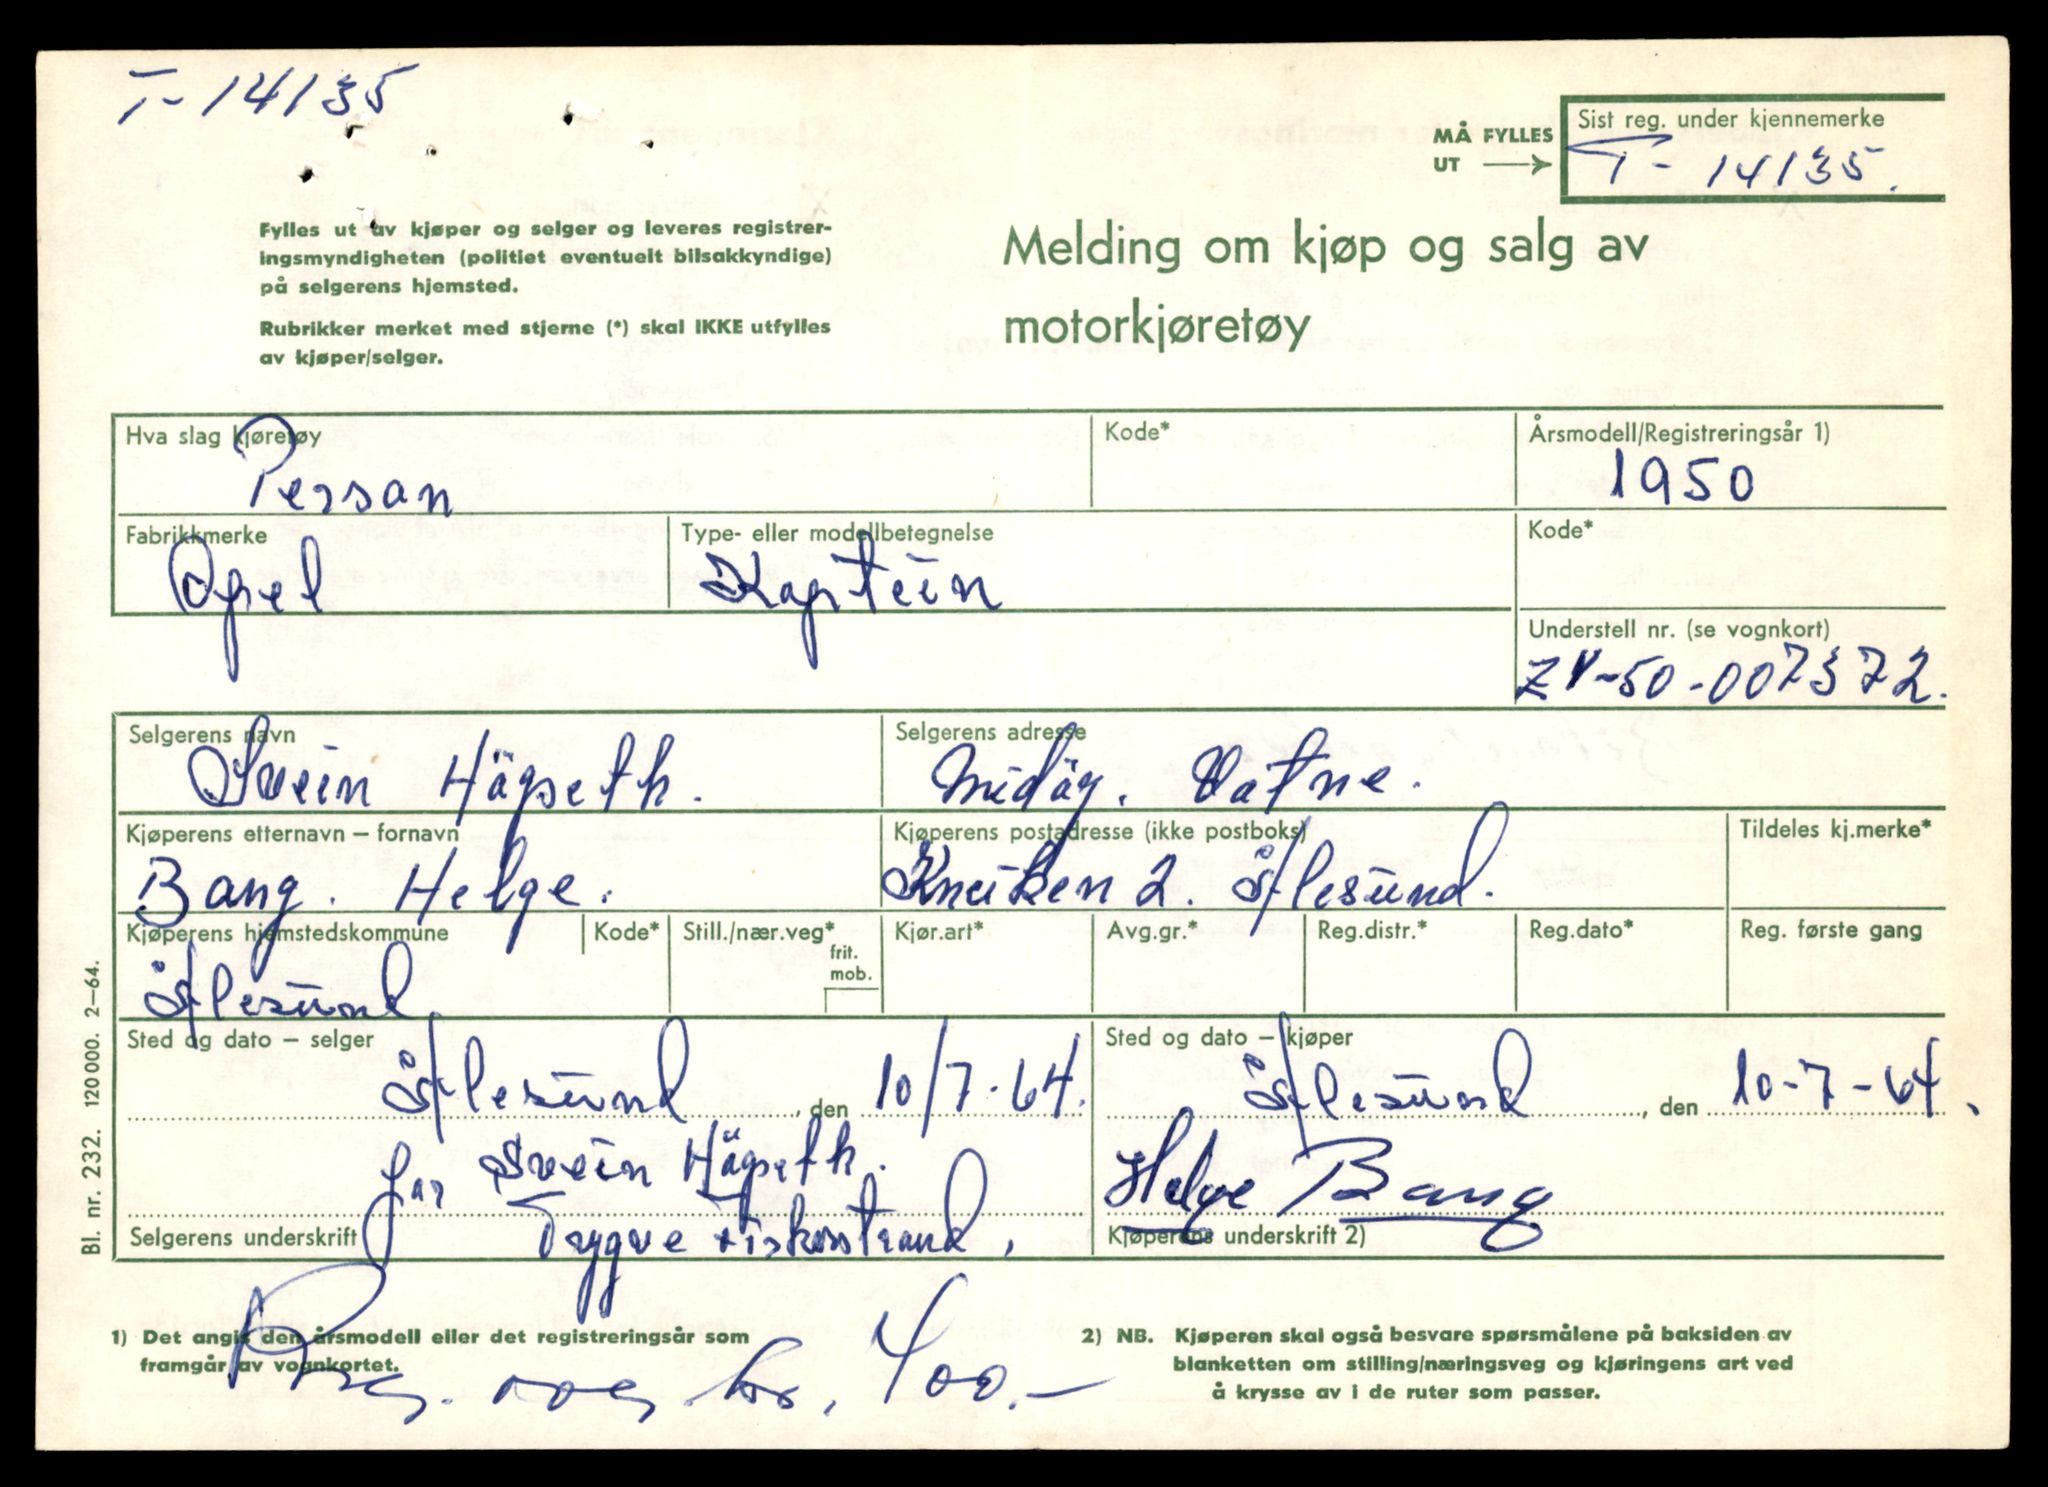 T-14135
MÅ FYLLES UT
Sist reg. under kjennemerke
T-14135.
Fylles ut av kjøper og selger og leveres registrer-
ingsmyndigheten (politiet eventuelt bilsakkyndige)
på selgerens hjemsted.
Rubrikker merket med stjerne (*) skal IKKE utfylles
av kjøper/selger.
Melding om kjøp og salg av
motorkjøretøy
Hva slag kjøretøy
Persan
Kode*
Årsmodell/Registreringsår 1)
1950
Fabrikkmerke
Opel
Type- eller modellbetegnelse
Kaptein
Kode*
Understell nr. (se vognkort)
ZV-50-007372.
Selgerens navn
Svein Hägseth.
Selgerens adresse
Midöy. Vatne.
Kjøperens etternavn – fornavn
Bang. Helge.
Kjøperens postadresse (ikke postboks)
Kneiken 2. Ålesund.
Tildeles kj.merke*
Kjøperens hjemstedskommune
Ålesund
Kode*
Still./nær.veg*
frit.
mob.
Kjør.art*
Avg.gr.*
Reg.distr.*
Reg.dato*
Reg. første gang
Sted og dato – selger
Ålesund, den 10/7-64.
for Svein Hägseth.
Selgerens underskrift
Trygve Fiskerstrand.
Sted og dato – kjøper
Ålesund, den 10-7-64.
Helge Bang
Kjøperens underskrift 2)
Bl. nr. 232. 120000. 2–64.
1) Det angis den årsmodell eller det registreringsår som
framgår av vognkortet.
kr. 400.-
2) NB. Kjøperen skal også besvare spørsmålene på baksiden av
blanketten om stilling/næringsveg og kjøringens art ved
å krysse av i de ruter som passer.